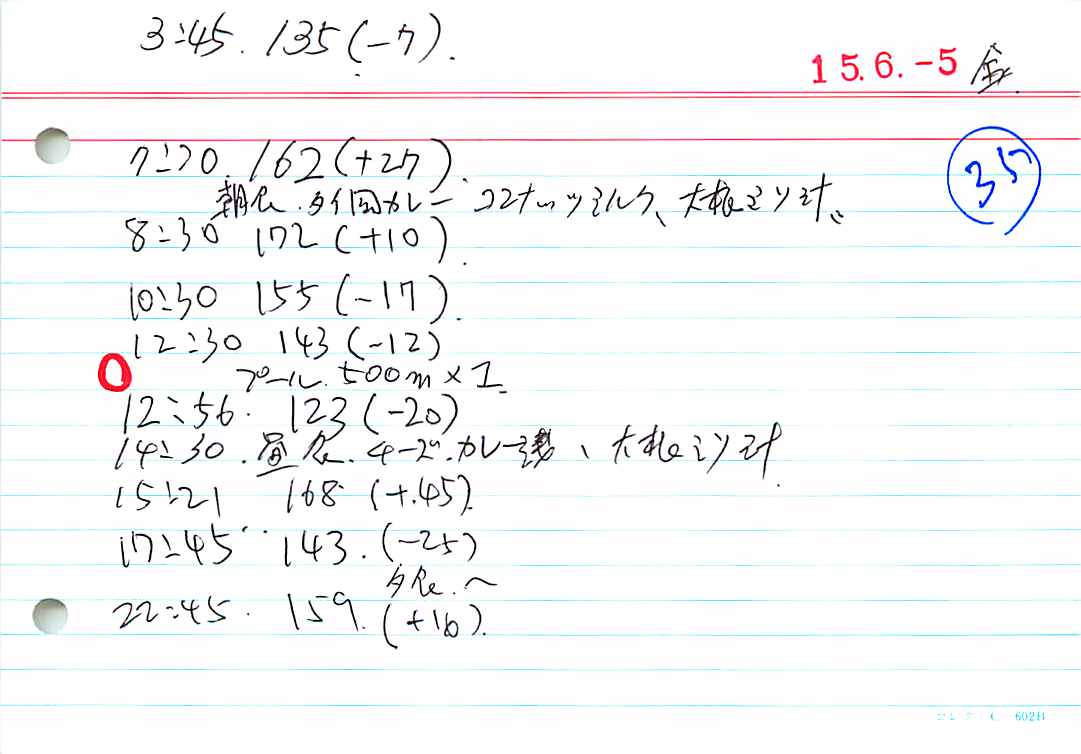 3:45. 135 (-7).
15.6.-5 金
7:20. 162 (+27).
35
朝食.タイ風カレー ココナッツミルク、大根ミソ汁、
8:30 172 (+10).
10:30 155 (-17).
12:30 143 (-12)
プール. 500m×1
12:56. 123 (-20)
14:30.昼食.チーズ.カレー、大根ミソ汁.
15:21 168 (+.45).
17:45 143. (-25)
夕食.〜
22:45. 159. (+16).
コレクト C-602B